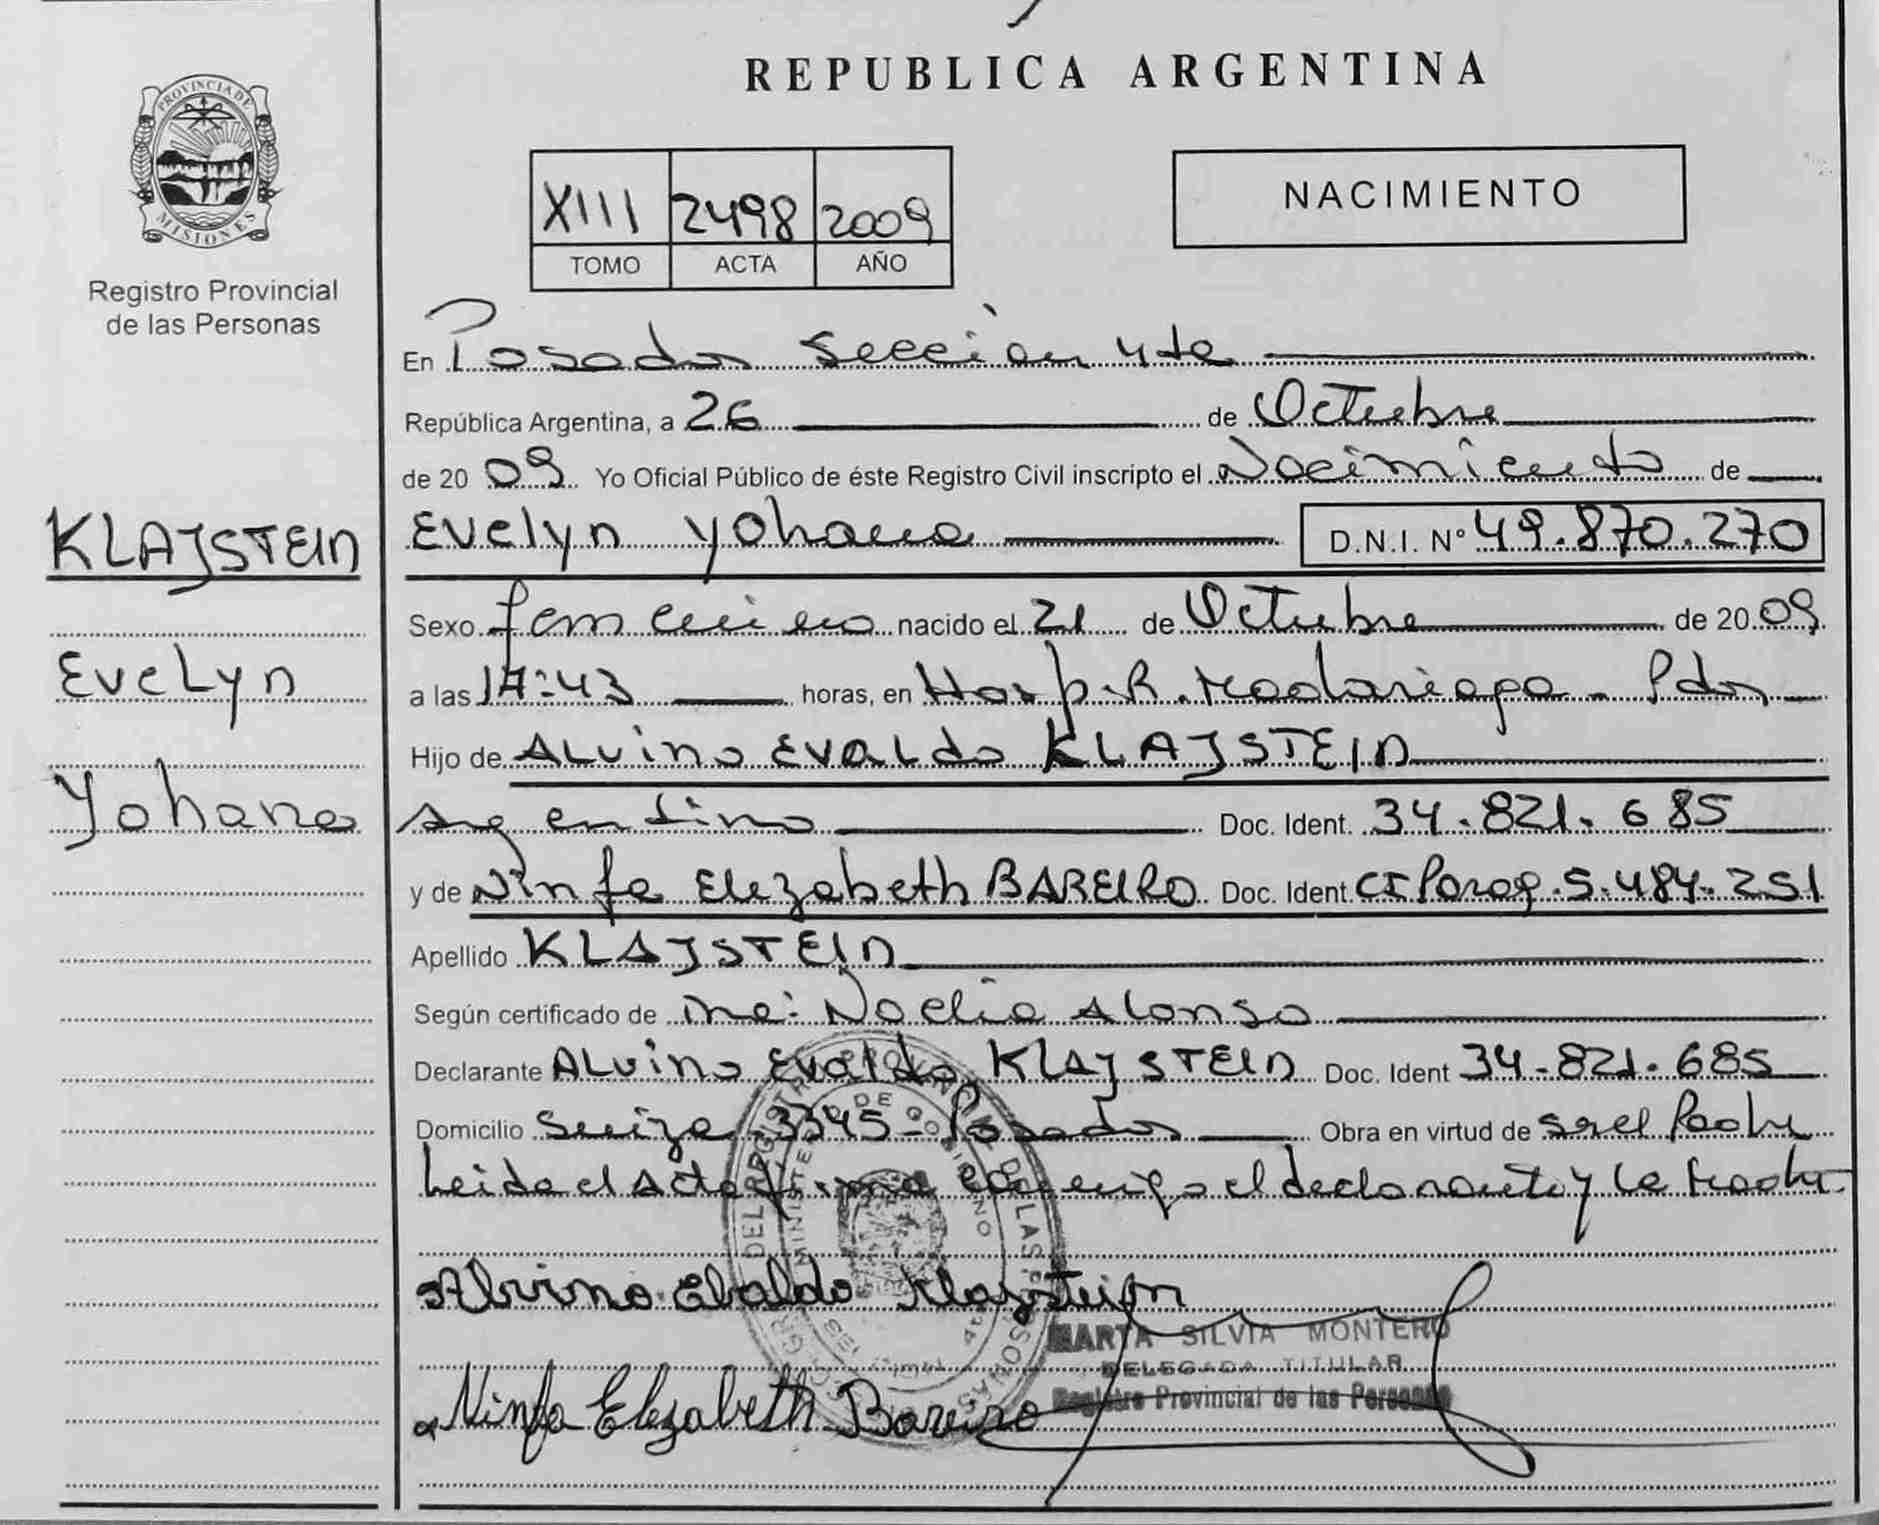 PROVINCIA DE MISIONES
Registro Provincial
de las Personas
KLAJSTEIN
Evelyn
Yohana
REPUBLICA ARGENTINA
XIII 2498 2009
TOMO ACTA AÑO
NACIMIENTO
En Posadas Sección 4ta
República Argentina, a 26 de Octubre
de 2009 Yo Oficial Público de éste Registro Civil inscripto el Nacimiento de
Evelyn Yohana D.N.I. Nº 49.870.270
Sexo femenino nacido el 21 de Octubre de 2009
a las 17:43 horas, en Hosp. R. Madariaga - Pdas
Hijo de Alvino Evaldo KLAJSTEIN
Argentino Doc. Ident. 34.821.685
y de Ninfa Elizabeth BAREIRO Doc. Ident. CI Parag. 5.484.251
Apellido KLAJSTEIN
Según certificado de Noelia Alonso
Declarante Alvino Evaldo KLAJSTEIN Doc. Ident 34-821.685
Domicilio Suiza 3345 - Posadas Obra en virtud de ser el Padre
Leida el Acta firma conmigo el declarante y la Madre
Alvino Ebaldo Klajstein
MARTA SILVIA MONTERO
DELEGADA TITULAR
Registro Provincial de las Personas
Ninfa Elizabeth Bareiro